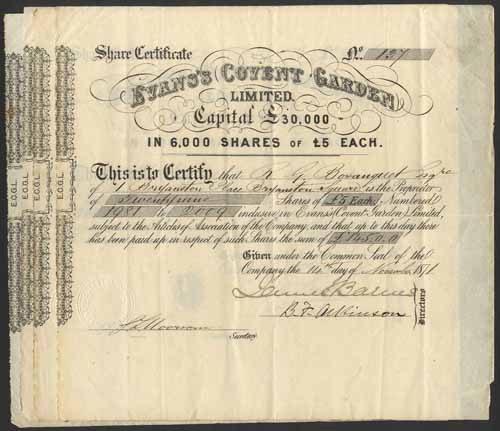 Share Certificate No. 137
EVANS'S COVENT GARDEN
LIMITED.
Capital £30,000
IN 6,000 SHARES OF £5 EACH.
This is to Certify that R G Bosanquet Esqre
of 1 Bryanston Place Bryanston Square is the Proprietor
of Twentynine Shares of £5 Each, Numbered
1981 to 2009 inclusive in Evans's Covent Garden Limited,
subject to the Articles of Association of the Company, and that up to this day there
has been paid up in respect of such Shares the sum of £145.0.0
Given under the Common Seal of the
Company the 14th day of November 1871
James Barnes
B. F. Atkinson
Directors
Secretary
E.C.G.L.
E.C.G.L.
E.C.G.L.
E.C.G.L.